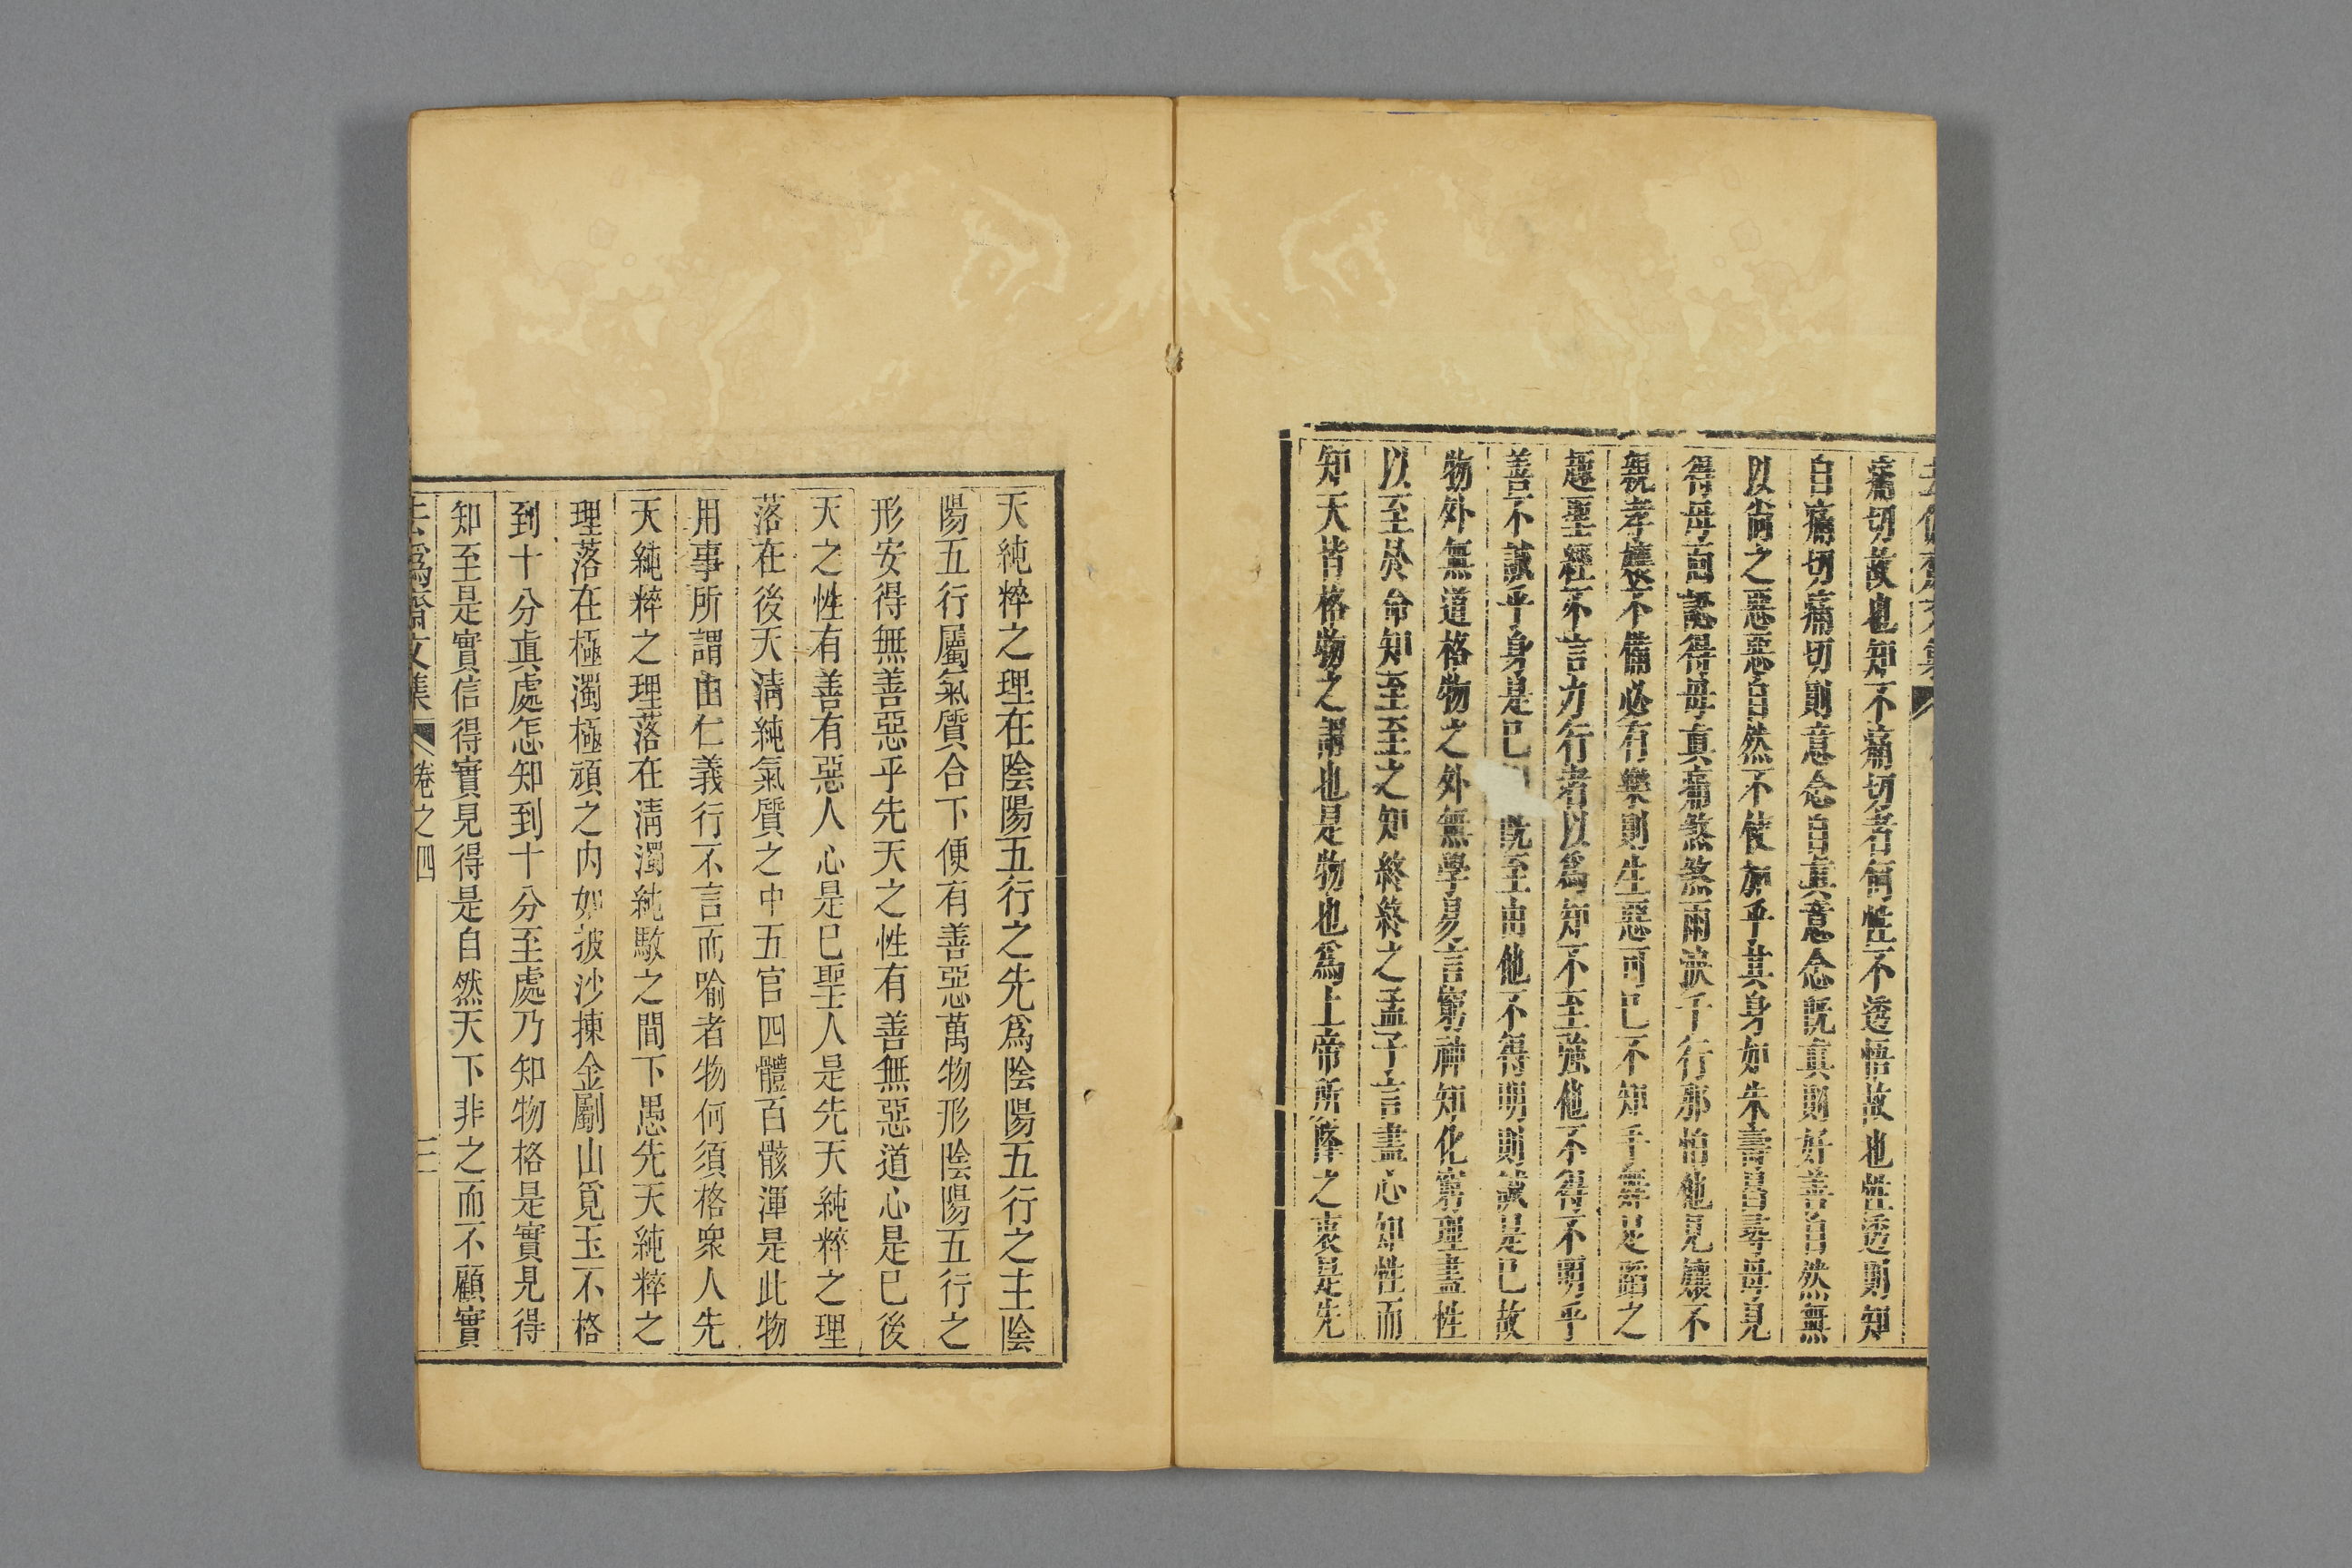 痛切故也知不痛切者何性不透悟故也性透則知
自痛切痛切則意念自真意念既真則好善自然無
以尚之惡惡自然不使加乎其身如朱壽昌尋母見
得母面認得母真痛煞煞雨淚千行那怕他見儀不
親孝儀不備必有樂則生惡可已不知手舞足蹈之
趣聖經不言力行者以爲知不至強他不得不明乎
善不誠乎身是已既至由他不得明則誠是已故
物外無道格物之外無學易言窮神知化窮理盡性
以至於命知至至之知終終之孟子言盡心知性而
知天皆格物之謂也是物也爲上帝所降之衷是先
天純粹之理在陰陽五行之先爲陰陽五行之主陰
陽五行屬氣質合下便有善惡萬物形陰陽五行之
形安得無善惡乎先天之性有善無惡道心是已後
天之性有善有惡人心是已聖人是先天純粹之理
落在後天清純氣質之中五官四體百骸渾是此物
用事所謂由仁義行不言而喻者物何須格衆人先
天純粹之理落在清濁純駁之間下愚先天純粹之
理落在極濁極頑之内如披沙揀金劚山覓玉不格
到十分真處怎知到十分至處乃知物格是實見得
知至是實信得實見得是自然天下非之而不顧實
去僞齋文集 卷之四 三